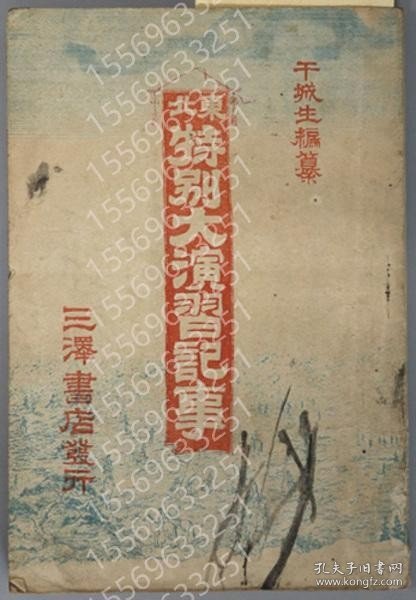 干城生編纂
東北
特别大演習記事
三澤書店發行
15569633251
孔夫子旧书网
www.kongfz.com